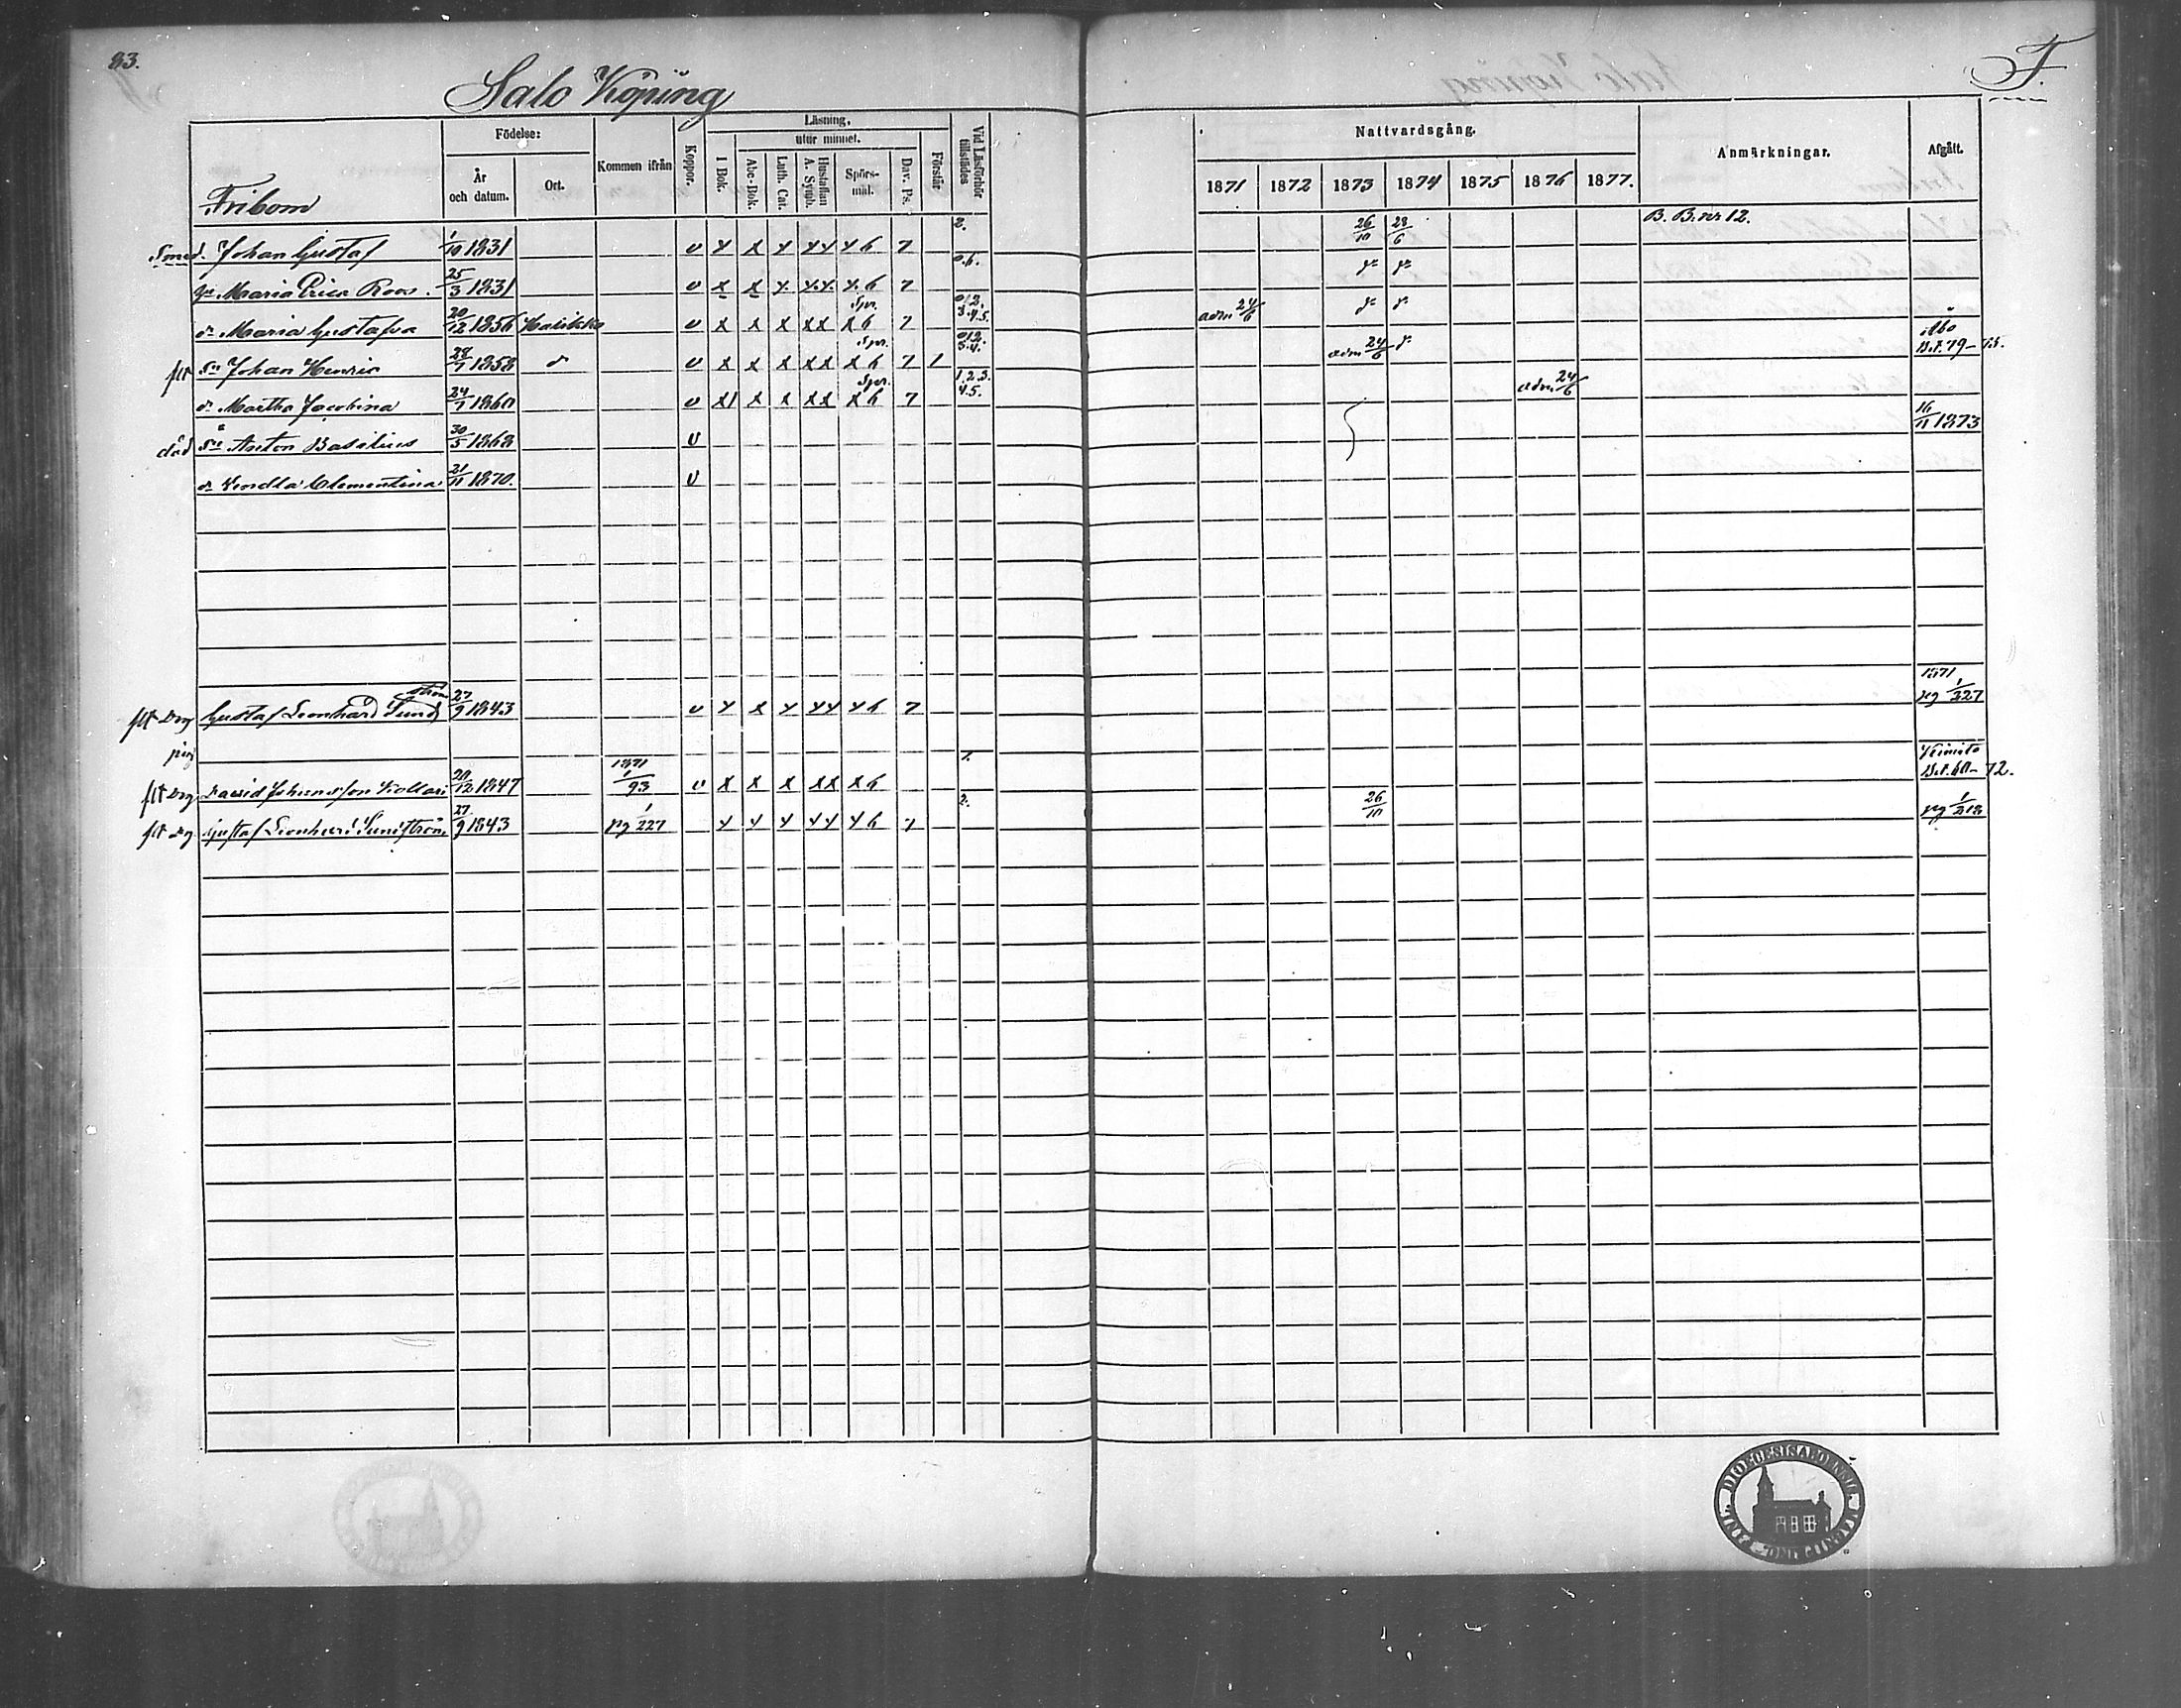 83.
Salo Köping
F.
Fribom
Födelse:
År och datum.
Ort.
Kommen ifrån
Koppor.
Läsning,
utur minnet.
I Bok.
Abc-Bok.
Luth. Cat.
Hustaflan A. Symb.
Spörsmål.
Dav. Ps.
Förstår
Vid Läsförhör tillstädes
Nattvardsgång.
1871 1872 1873 1874 1875 1876 1877.
Anmärkningar.
Afgått.
Smed. Johan Gustaf 1/10 1831 v x x x xx x 6 7 2. 26/10 28/6 B. B. nr 12.
Maria Erica Roos. 25/3 1831 v x x x xx x 6 7 0.6.
dr Maria Gustafva 20/12 1856 Halikko v x x x xx Spr. x 6 7 0.1.2. 3.4.5. adm 24/6
flt Sn Johan Henric 28/7 1858 v x x x xx Spr. x 6 7 1 0.1.2. 3.4. adm 24/6 Åbo B.t. 79-75.
dr Martha Jacobina 24/7 1860 v x1 x x xx Spr. x 6 7 1.2.3. 4.5. adm 24/6
död Sn Anton Basilius 30/5 1868 v 16/11 1873
dr Vendla Clementina 21/11 1870. v
flt Drg Gustaf Leonhard Sundström 27/9 1843 v x x x xx x 6 7 1871 pg 1/227
pig
flt Drg David Johansson 20/12 1847 1871 1/93 v x x x xx x 6 1. Kimito B.t. 60-72.
flt Dg Gustaf Leonhard Sundström 27/9 1843 pg 1/227 x x x xx x 6 7 2. 26/10 pg 1/218